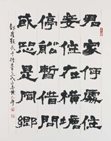 君家何處住
妾住在橫塘
停船暫借問
或恐是同鄉